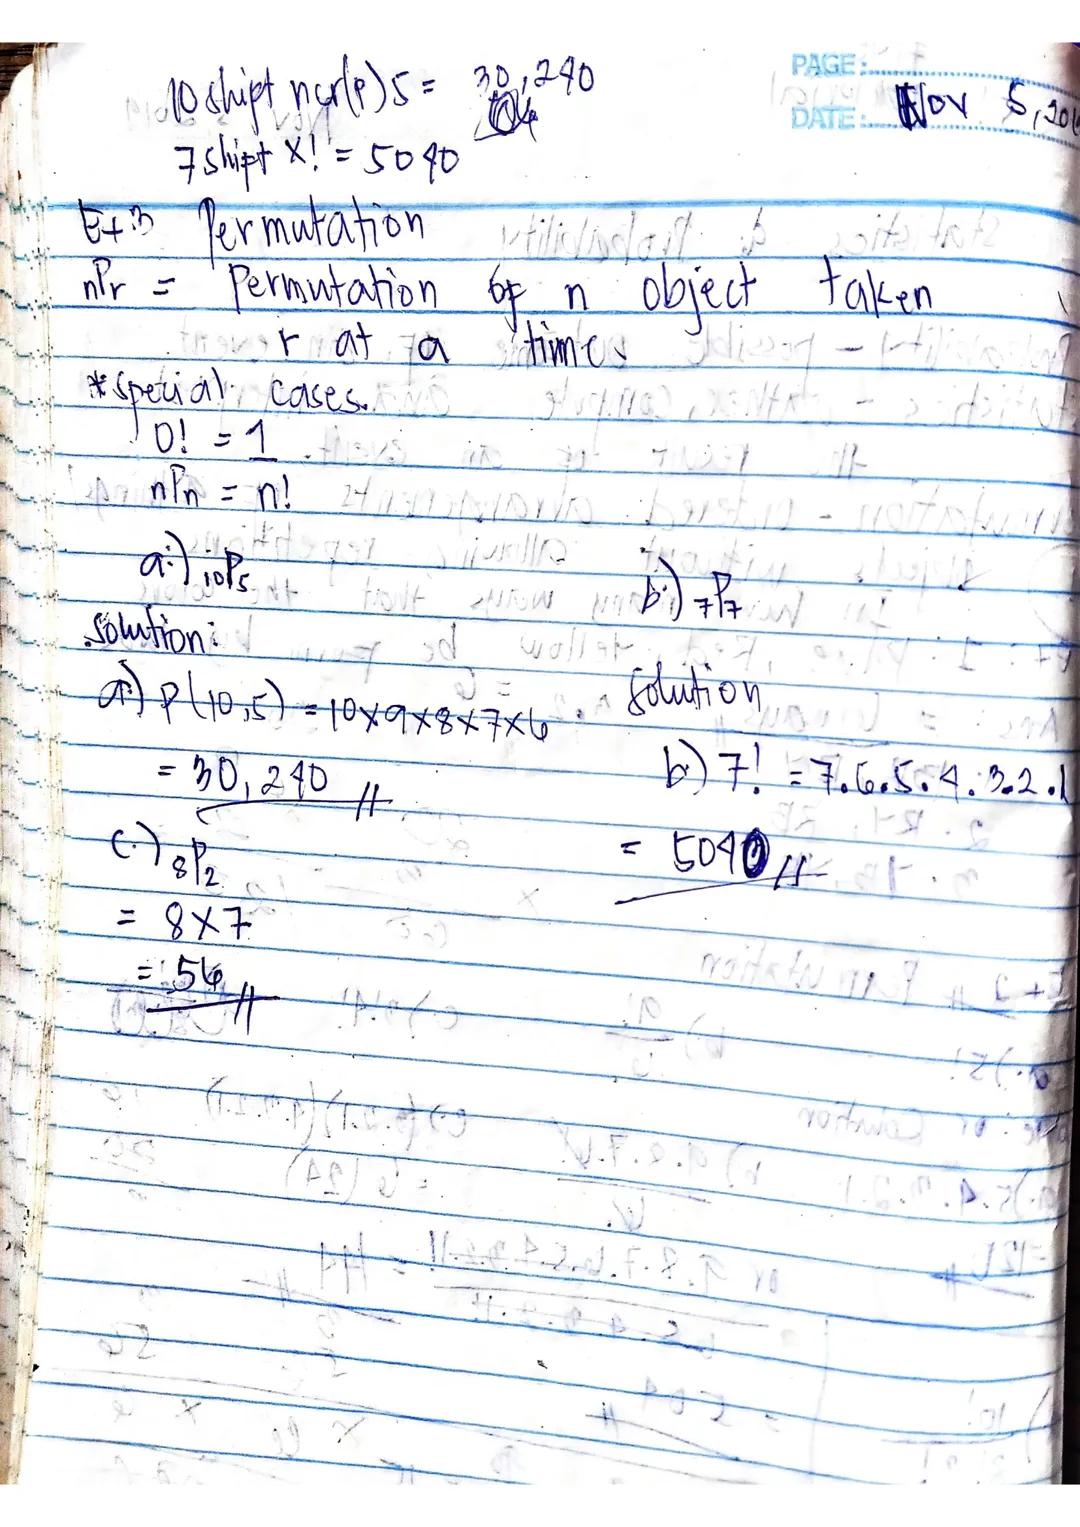 PAGE:
DATE: Nov 5, 20
10 shipt ncr(p) 5 = 30,240
7 shipt x! = 5040
Ex 3 Permutation
nPr = Permutation of n object taken
r at a time.
*special cases.
0! = 1
nPn = n!
a.) 10P5
b.) 7P7
solution:
a) P(10,5) = 10x9x8x7x6
= 30,240 //
solution
b.) 7! = 7.6.5.4.3.2.1
= 5040 //
c.) 8P2
= 8x7
= 56 //